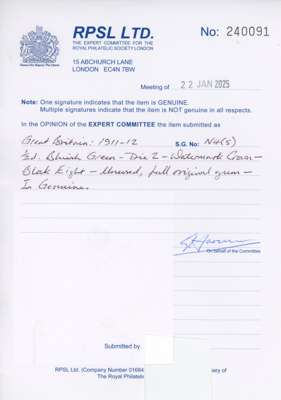 RPSL LTD.
THE EXPERT COMMITTEE FOR THE
ROYAL PHILATELIC SOCIETY LONDON
No: 240091
15 ABCHURCH LANE
LONDON EC4N 7BW
Meeting of 22 JAN 2025
Note: One signature indicates that the item is GENUINE.
Multiple signatures indicate that the item is NOT genuine in all respects.
In the OPINION of the EXPERT COMMITTEE the item submitted as
Great Britain: 1911-12 S.G. No: N4(5)
½d. Bluish Green - Die 2 - Watermark Crown -
Block Eight - Unused, full original gum -
Is Genuine.
On behalf of the Committee
Submitted by
RPSL Ltd. (Company Number 01664 ary of
The Royal Philatelic